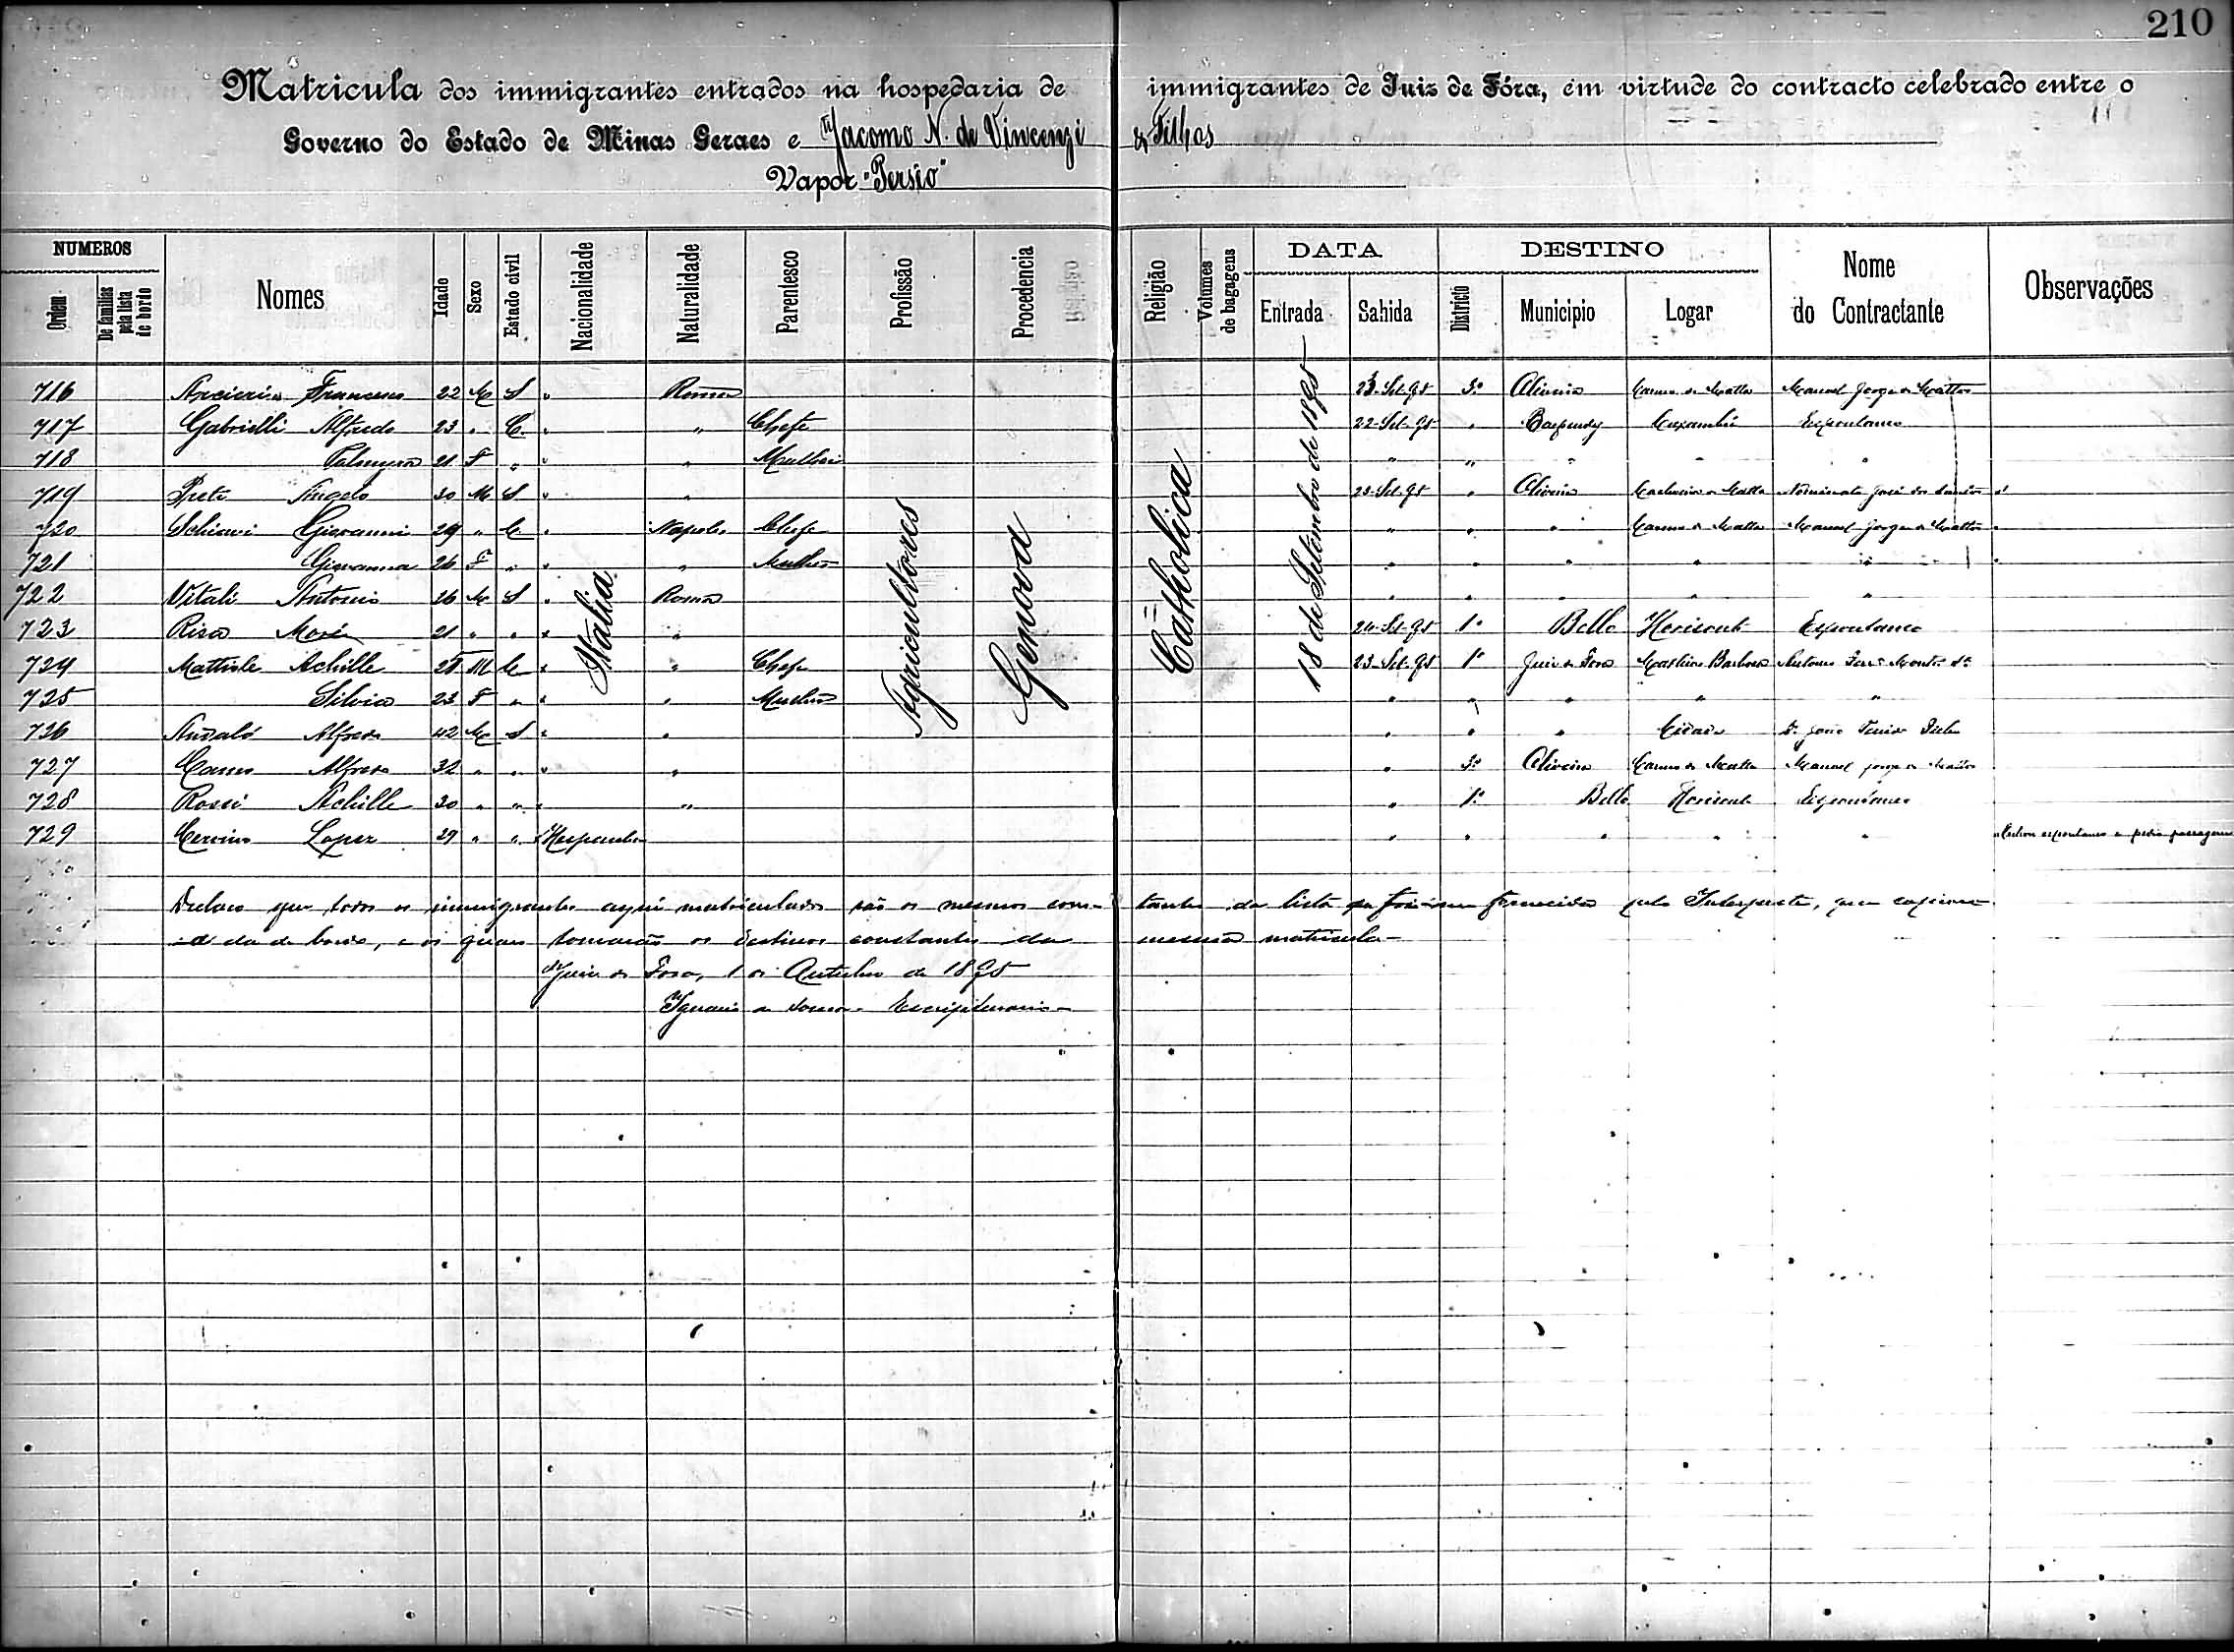 210
Matricula dos immigrantes entrados na hospedaria de immigrantes de Juiz de Fóra, em virtude do contracto celebrado entre o
Governo do Estado de Minas Geraes e Giacomo N. de Vincenzi & Filhos
Vapor "Persio"
NUMEROS Nomes Idade Sexo Estado civil Nacionalidade Naturalidade Parentesco Profissão Procedencia Religião Volumes de bagagens DATA DESTINO Nome do Contractante Observações
Ordem De familias pela lista de bordo Entrada Sahida Districto Municipio Logar
Italia Agricultores Genova Catholica 18 de Setembro de 1895
716 Francesco 22 M S " Roma 23-Set-95 3º Oliveira Carmo da Matta Manoel Jorge de Mattos
717 Gabrielli Alfredo 23 " C. " " Chefe 22-Set-95 " Baependy Caxambú Espontaneo
718 Palmyra 21 F " " " Mulher " " " " "
719 Preti Angelo 30 M S " " 23-Set-95 " Oliveira
720 Schiavi Giovanni 29 " C. " Napoles Chefe " " " Carmo da Matta Manoel Jorge de Mattos
721 Giovanna 26 F " " " Mulher " " " " "
722 Vitali Antonio 26 M S " Roma " " " " "
723 Risa Mosé 21 " " " " 24-Set-95 1º Bello Horisonte Espontaneo
724 Achille 28 M C " " Chefe 23-Set-95 1º Juiz de Fora Mathias Barbosa Antonio
725 Silvia 23 F " " " Mulher " " " " "
726 Andaló Alfredo 42 M S " " " " " Cidade
727 Camo Alfredo 32 " " " " " 3º Oliveira Carmo da Matta Manoel Jorge de Mattos
728 Rossi Achille 30 " " " " " 1º Bello Horisonte Espontaneo
729 Lopez 29 " " Hespanha " " " " " espontaneo e passagem
Declaro que todos os immigrantes aqui matriculados são os mesmos constantes da lista fornecida pelo Interprete,
da de bordo, e os quaes tomarão os destinos constantes da mesma matricula-
Juiz de Fora, 1 de Outubro de 1895
Ignacio Escripturario-